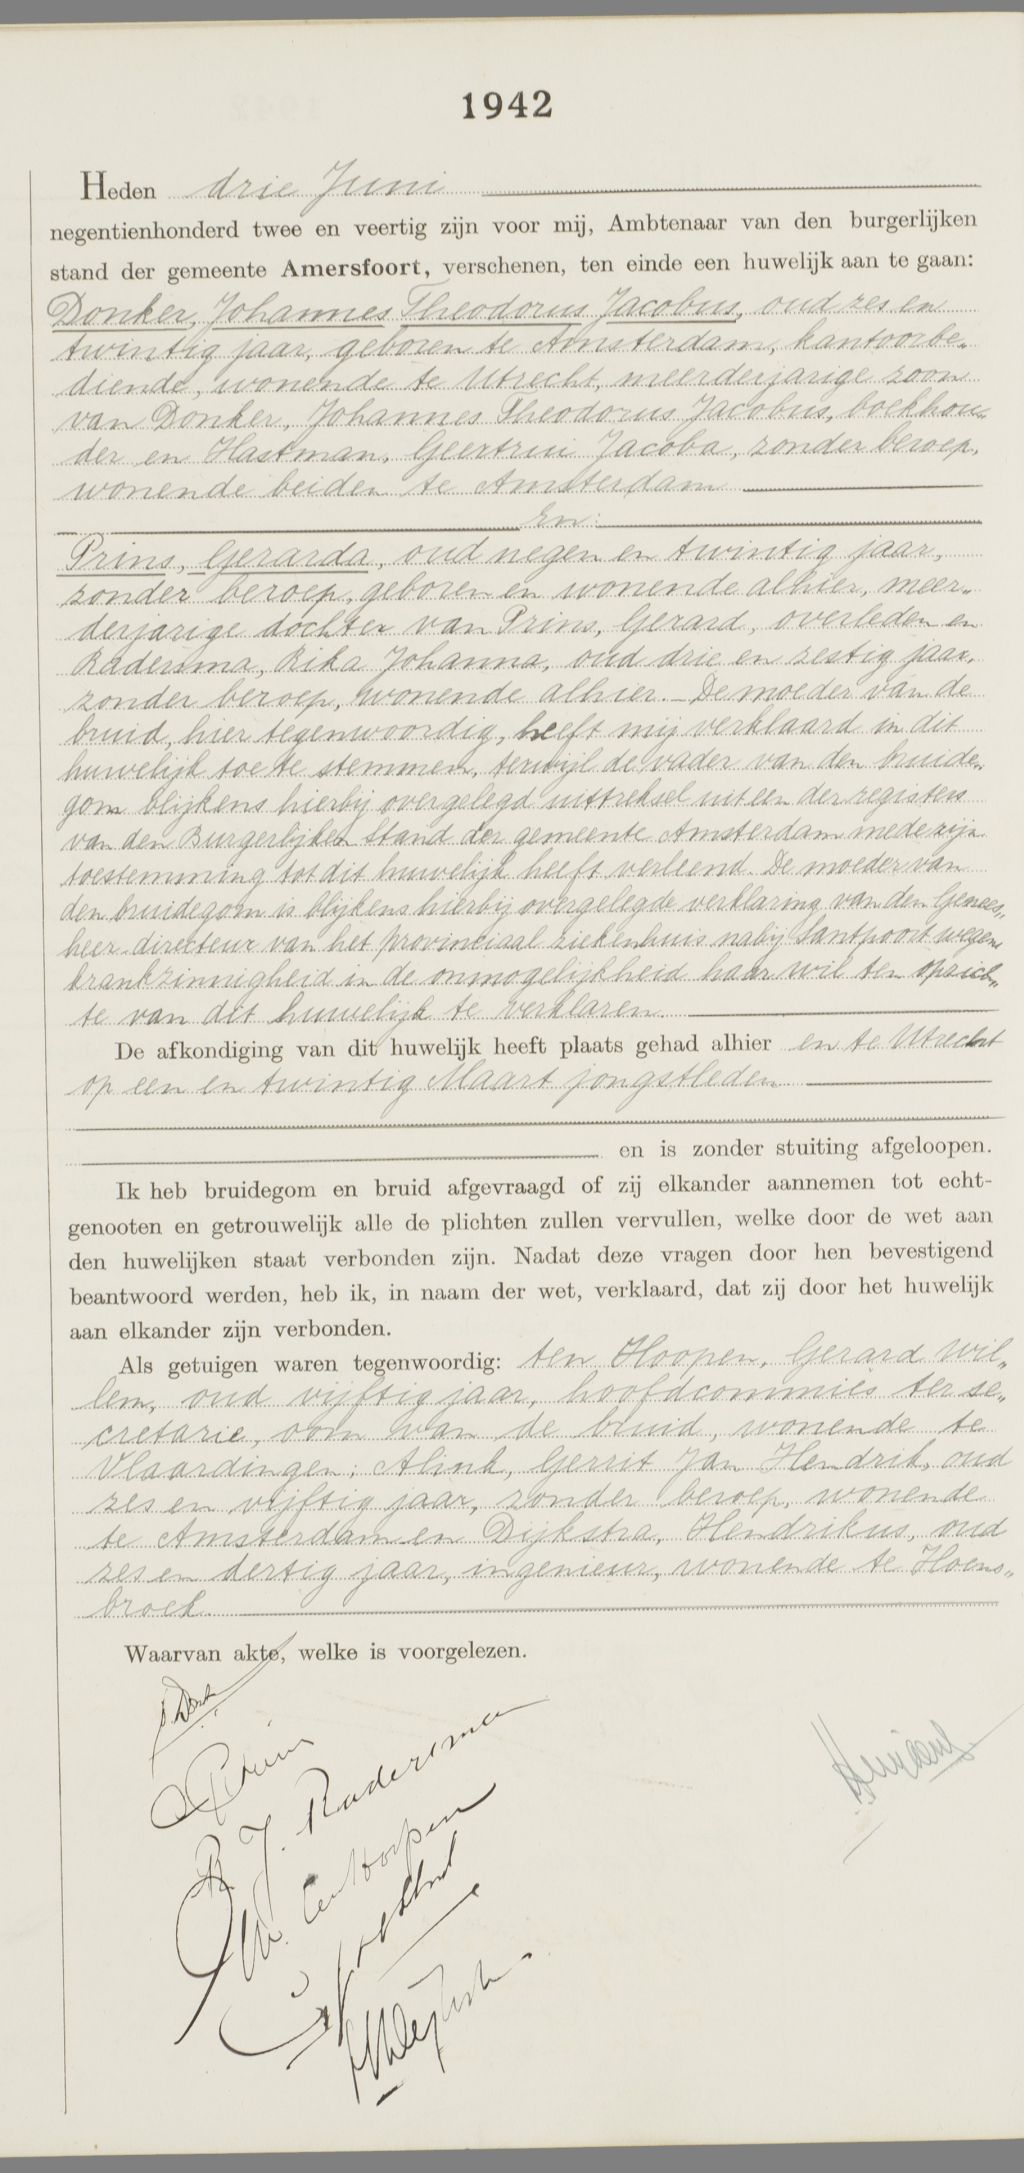 1942
Heden drie Juni
negentienhonderd twee en veertig zijn voor mij, Ambtenaar van den burgerlijken
stand der gemeente Amersfoort, verschenen, ten einde een huwelijk aan te gaan:
Donker, Johannes Theodorus Jacobus, oud zes en
twintig jaar, geboren te Amsterdam, kantoorbe„
diende, wonende te Utrecht, meerderjarige zoon
van Donker, Johannes Theodorus Jacobus, boekhou„
der en Hastman, Geertrui Jacoba, zonder beroep,
wonende beiden te Amsterdam
En:
Prins, Gerarda, oud negen en twintig jaar,
zonder beroep, geboren en wonende alhier, meer„
derjarige dochter van Prins, Gerard, overleden en
Radersma, Rika Johanna, oud drie en zestig jaar,
zonder beroep, wonende alhier. - De moeder van de
bruid, hier tegenwoordig, heeft mij verklaard in dit
huwelijk toe te stemmen, terwijl de vader van den bruide„
gom blijkens hierbij overgelegd uittreksel uit een der registers
van den Burgerlijken Stand der gemeente Amsterdam mede zijn
toestemming tot dit huwelijk heeft verleend. De moeder van
den bruidegom is blijkens hierbij overgelegde verklaring van den Genees„
heer-directeur van het provinciaal ziekenhuis nabij Santpoort wegens
krankzinnigheid in de onmogelijkheid haar wil ten opzich„
te van dit huwelijk te verklaren.
De afkondiging van dit huwelijk heeft plaats gehad alhier en te Utrecht
op een en twintig Maart jongstleden
en is zonder stuiting afgeloopen.
Ik heb bruidegom en bruid afgevraagd of zij elkander aannemen tot echt-
genooten en getrouwelijk alle de plichten zullen vervullen, welke door de wet aan
den huwelijken staat verbonden zijn. Nadat deze vragen door hen bevestigend
beantwoord werden, heb ik, in naam der wet, verklaard, dat zij door het huwelijk
aan elkander zijn verbonden.
Als getuigen waren tegenwoordig: ten Hoopen, Gerard Wil„
lem, oud vijftig jaar, hoofdcommies ter se„
cretarie, oom van de bruid, wonende te
Vlaardingen; Alink, Gerrit Jan Hendrik, oud
zes en vijftig jaar, zonder beroep, wonende
te Amsterdam en Dijkstra, Hendrikus, oud
zes en dertig jaar, ingenieur, wonende te Hoens„
broek.
Waarvan akte, welke is voorgelezen.
R J. Radersma
GW. ten Hoopen